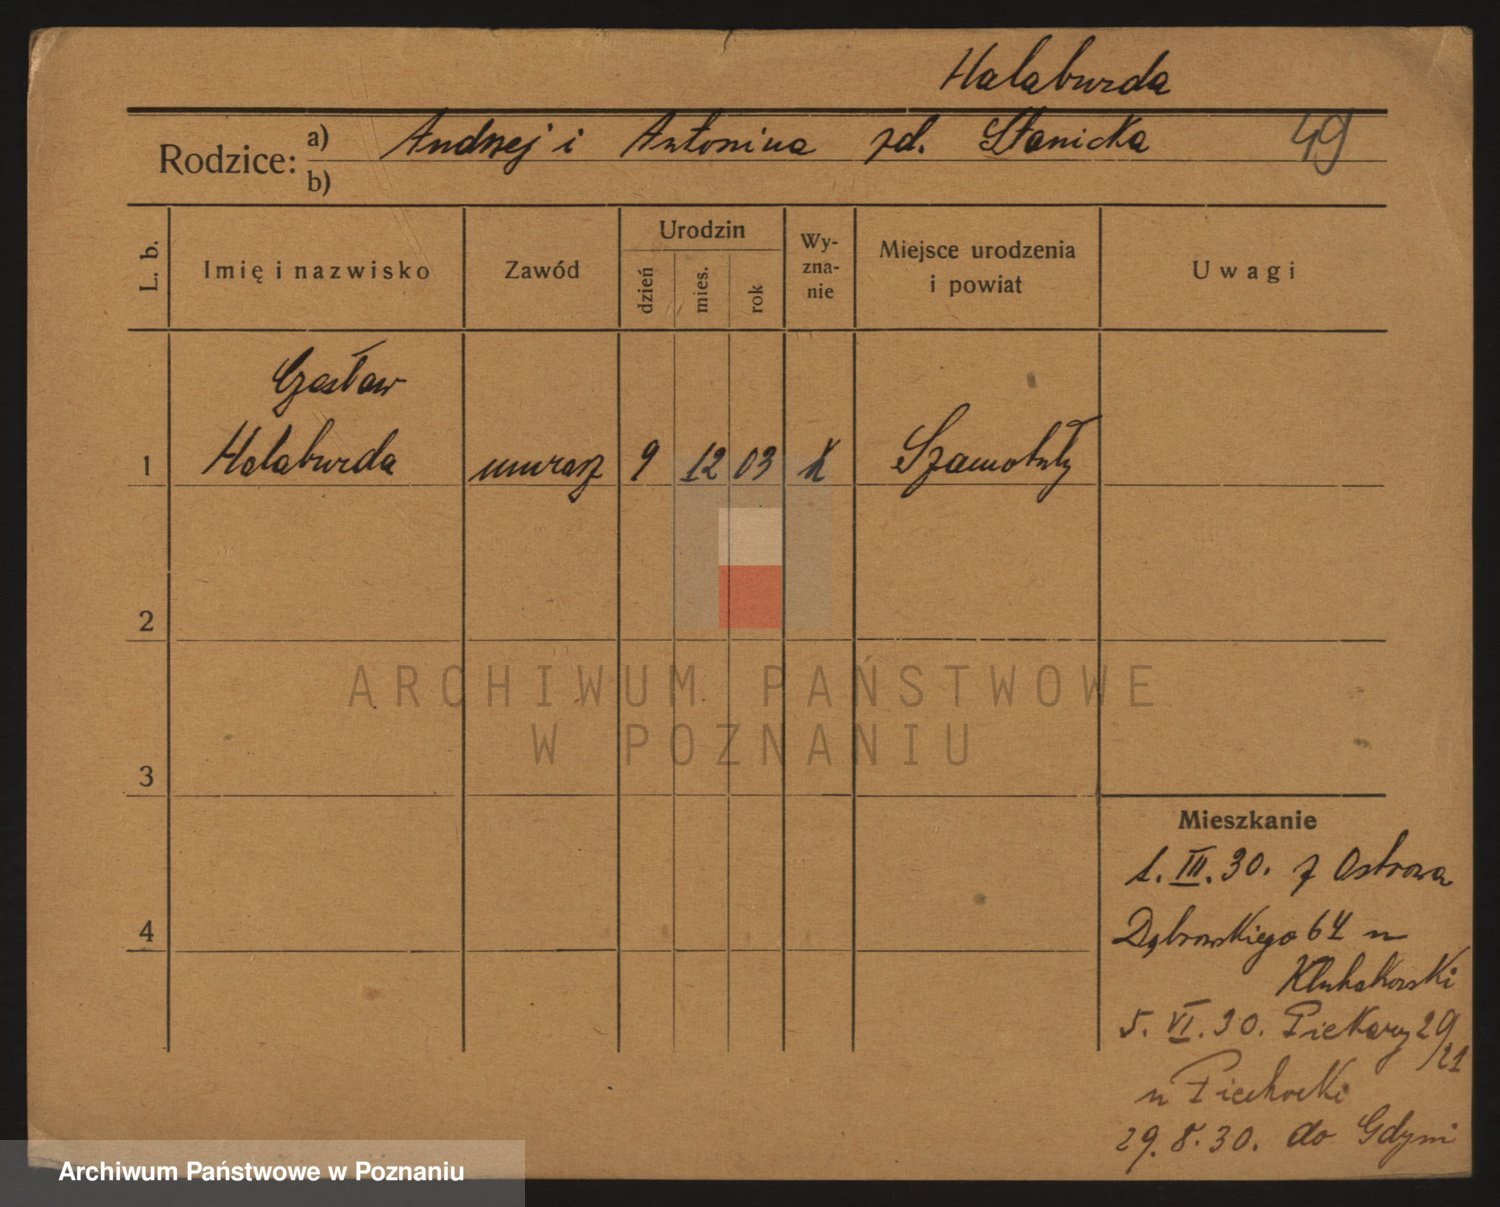 Halaburda
Rodzice: a) Andrzej i Antonina zd. Stanicka 49
b)
L. b. Imię i nazwisko Zawód Urodzin dzień mies. rok Wy-zna-nie Miejsce urodzenia i powiat Uwagi
Czesław
1 Halaburda murarz 9 12 03 K Szamotuły
2
ARCHIWUM PAŃSTWOWE
W POZNANIU
3
Mieszkanie
1. III. 30. z Ostrowa
4 Dąbrowskiego 64 u
5. VI. 30. Piekary 29/21
u Piechocki
29. 8. 30. do Gdyni
Archiwum Państwowe w Poznaniu